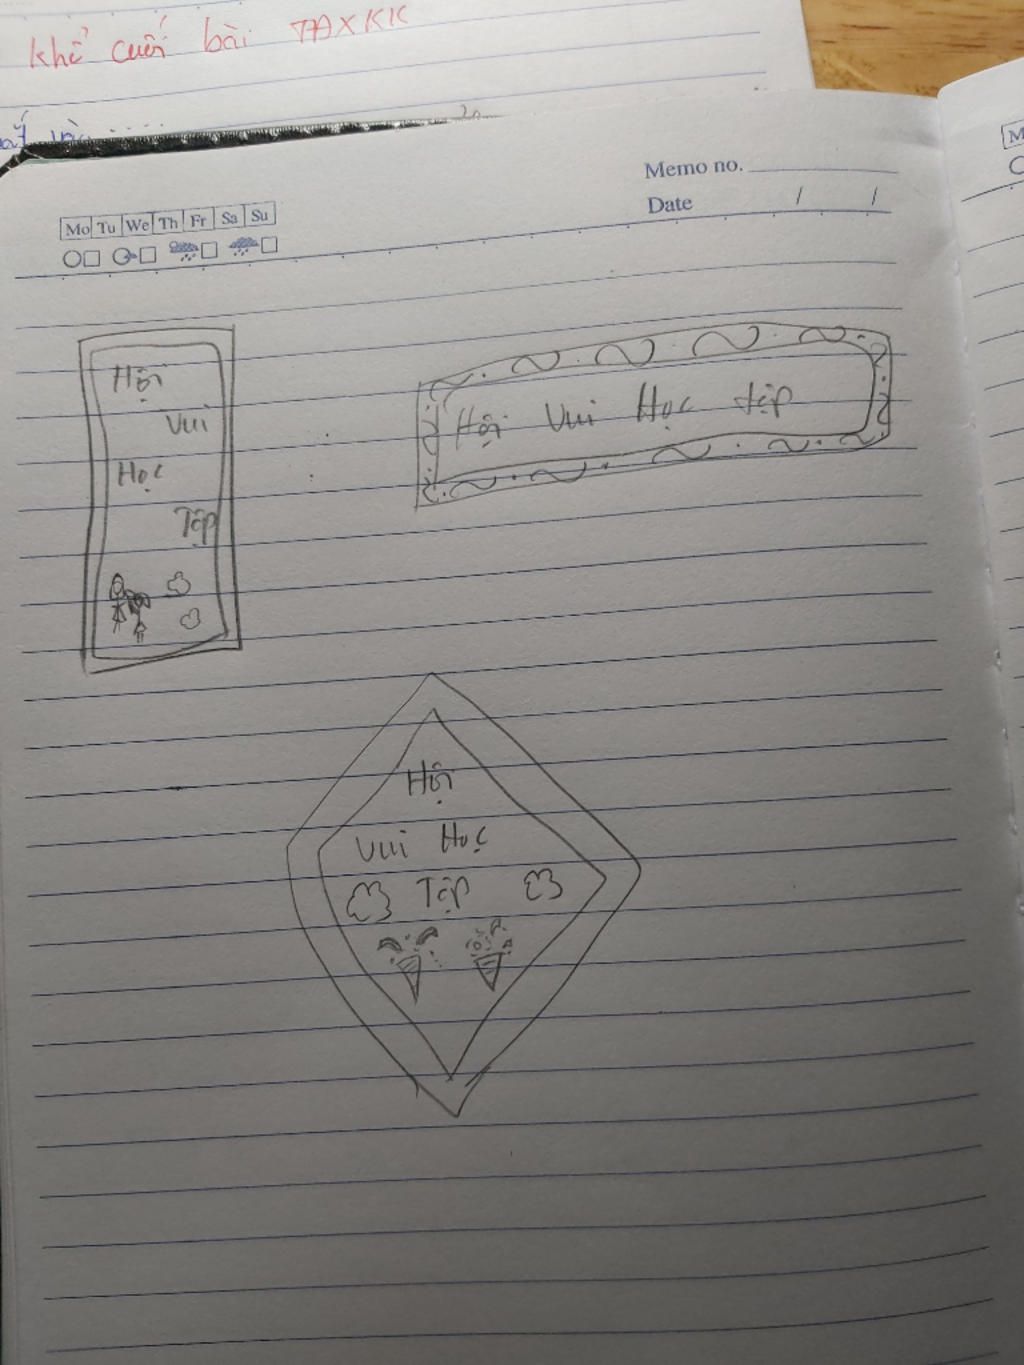 khổ cuối bài TAXKK
Memo no.
Date / /
Mo Tu We Th Fr Sa Su
Hội
Vui
Học
Tập
Hội Vui Học tập
Hội
Vui Học
Tập